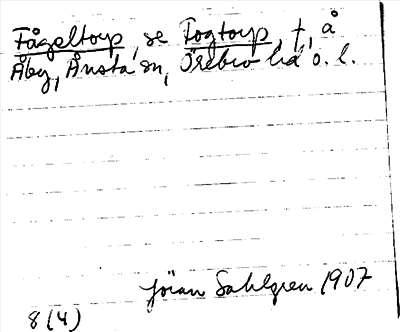 Fågeltorp, se Fogtorp, †, å
Åby, Ånsta sn, Örebro hd ö. l.
Jöran Sahlgren 1907
8 (4)